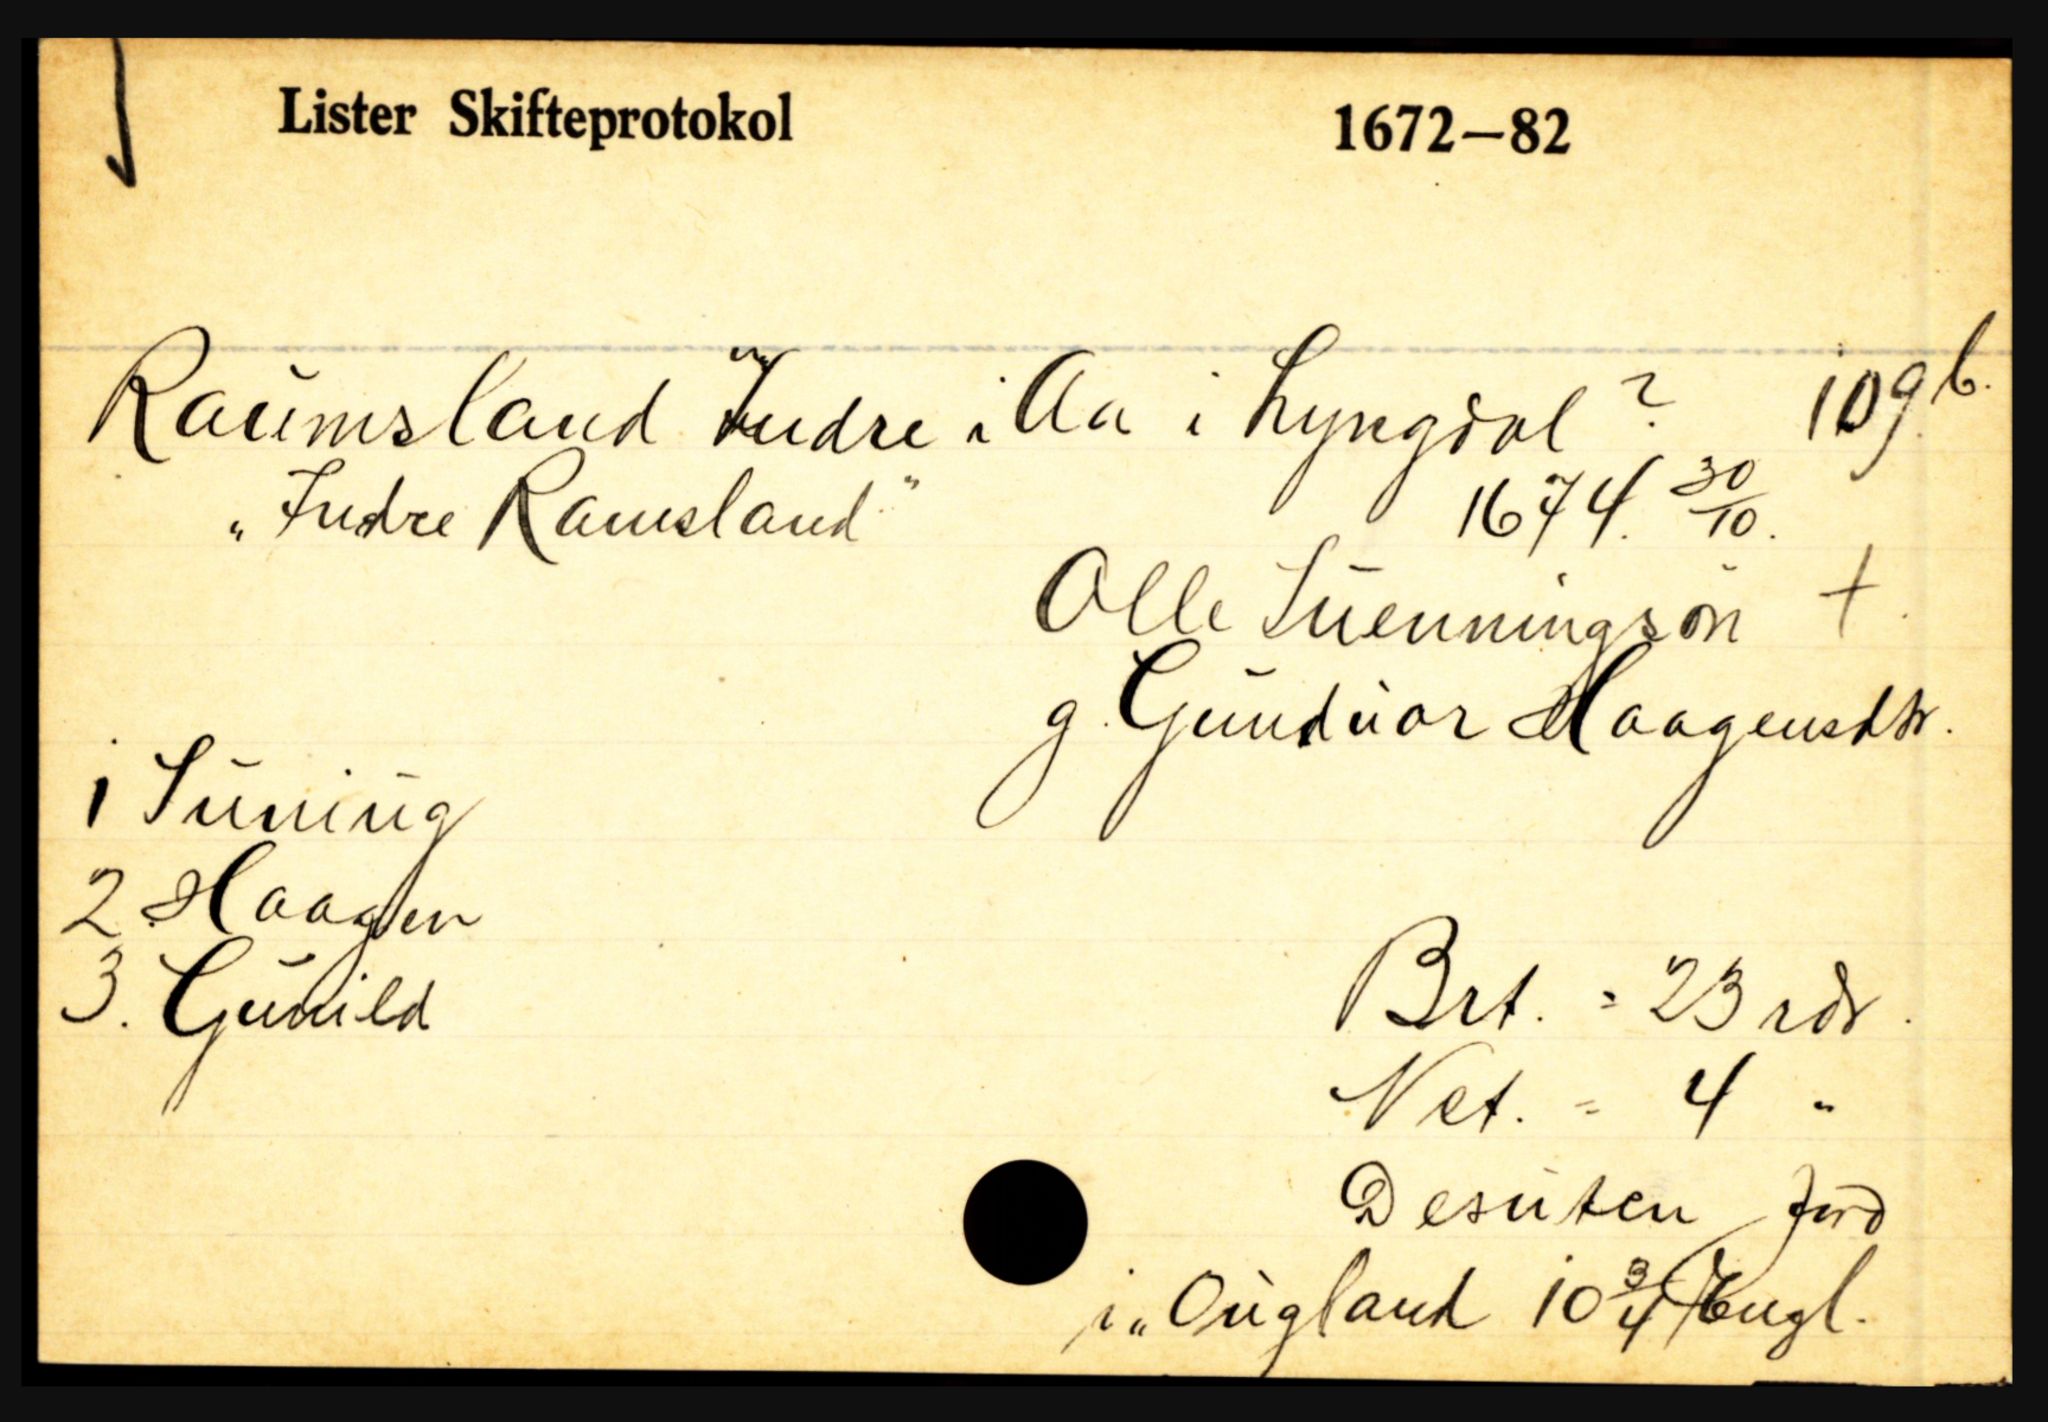 Lister Skifteprotokol 1672–82
Raumsland Indre i Aa i Lyngdal ? 109 b.
„Indre Ramsland" 1674. 30/10.
Olle Suenningsön +.
g. Gunduor Haagensdtr.
1 Suning
2 Haagen
3. Gunild
Brt. = 23 rdr.
Net. = 4 "
Desuten jord
i „Ougland 10 3/4 Engl.